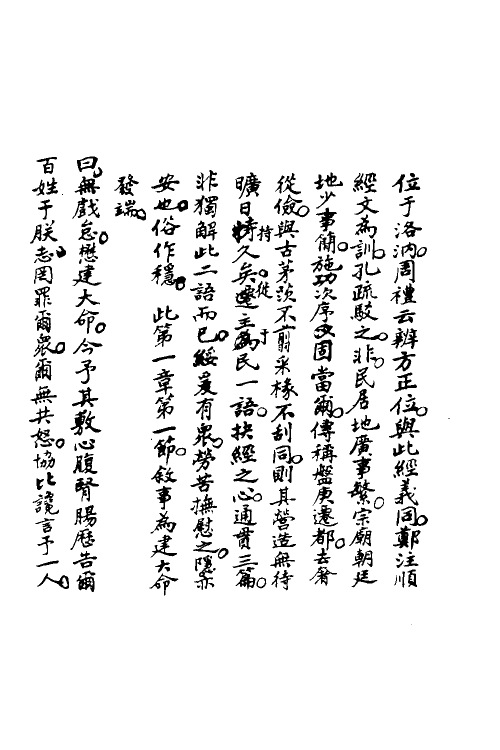 位于洛汭。周禮云辨方正位。與此經義同。鄭注順
經文為訓。孔疏駁之。非。民居地廣事繁。宗廟朝廷
地少事簡。施功次序固當爾。傳稱盤庚遷都。去奢
從儉。與古茅茨不翦采椽不刮同。則其營造無待
曠日持久矣。遷主於民一語。抉經之心。通貫三篇。
非獨解此二語而已。綏爰有眾。勞苦撫慰之。隱亦
安也。俗作穩。 此第一章第一節。敘事為建大命
發端。
曰。無戲怠。懋建大命。今予其敷心腹腎腸歷告爾
百姓于朕志。罔罪爾眾。爾無共怒。協比讒言予一人。